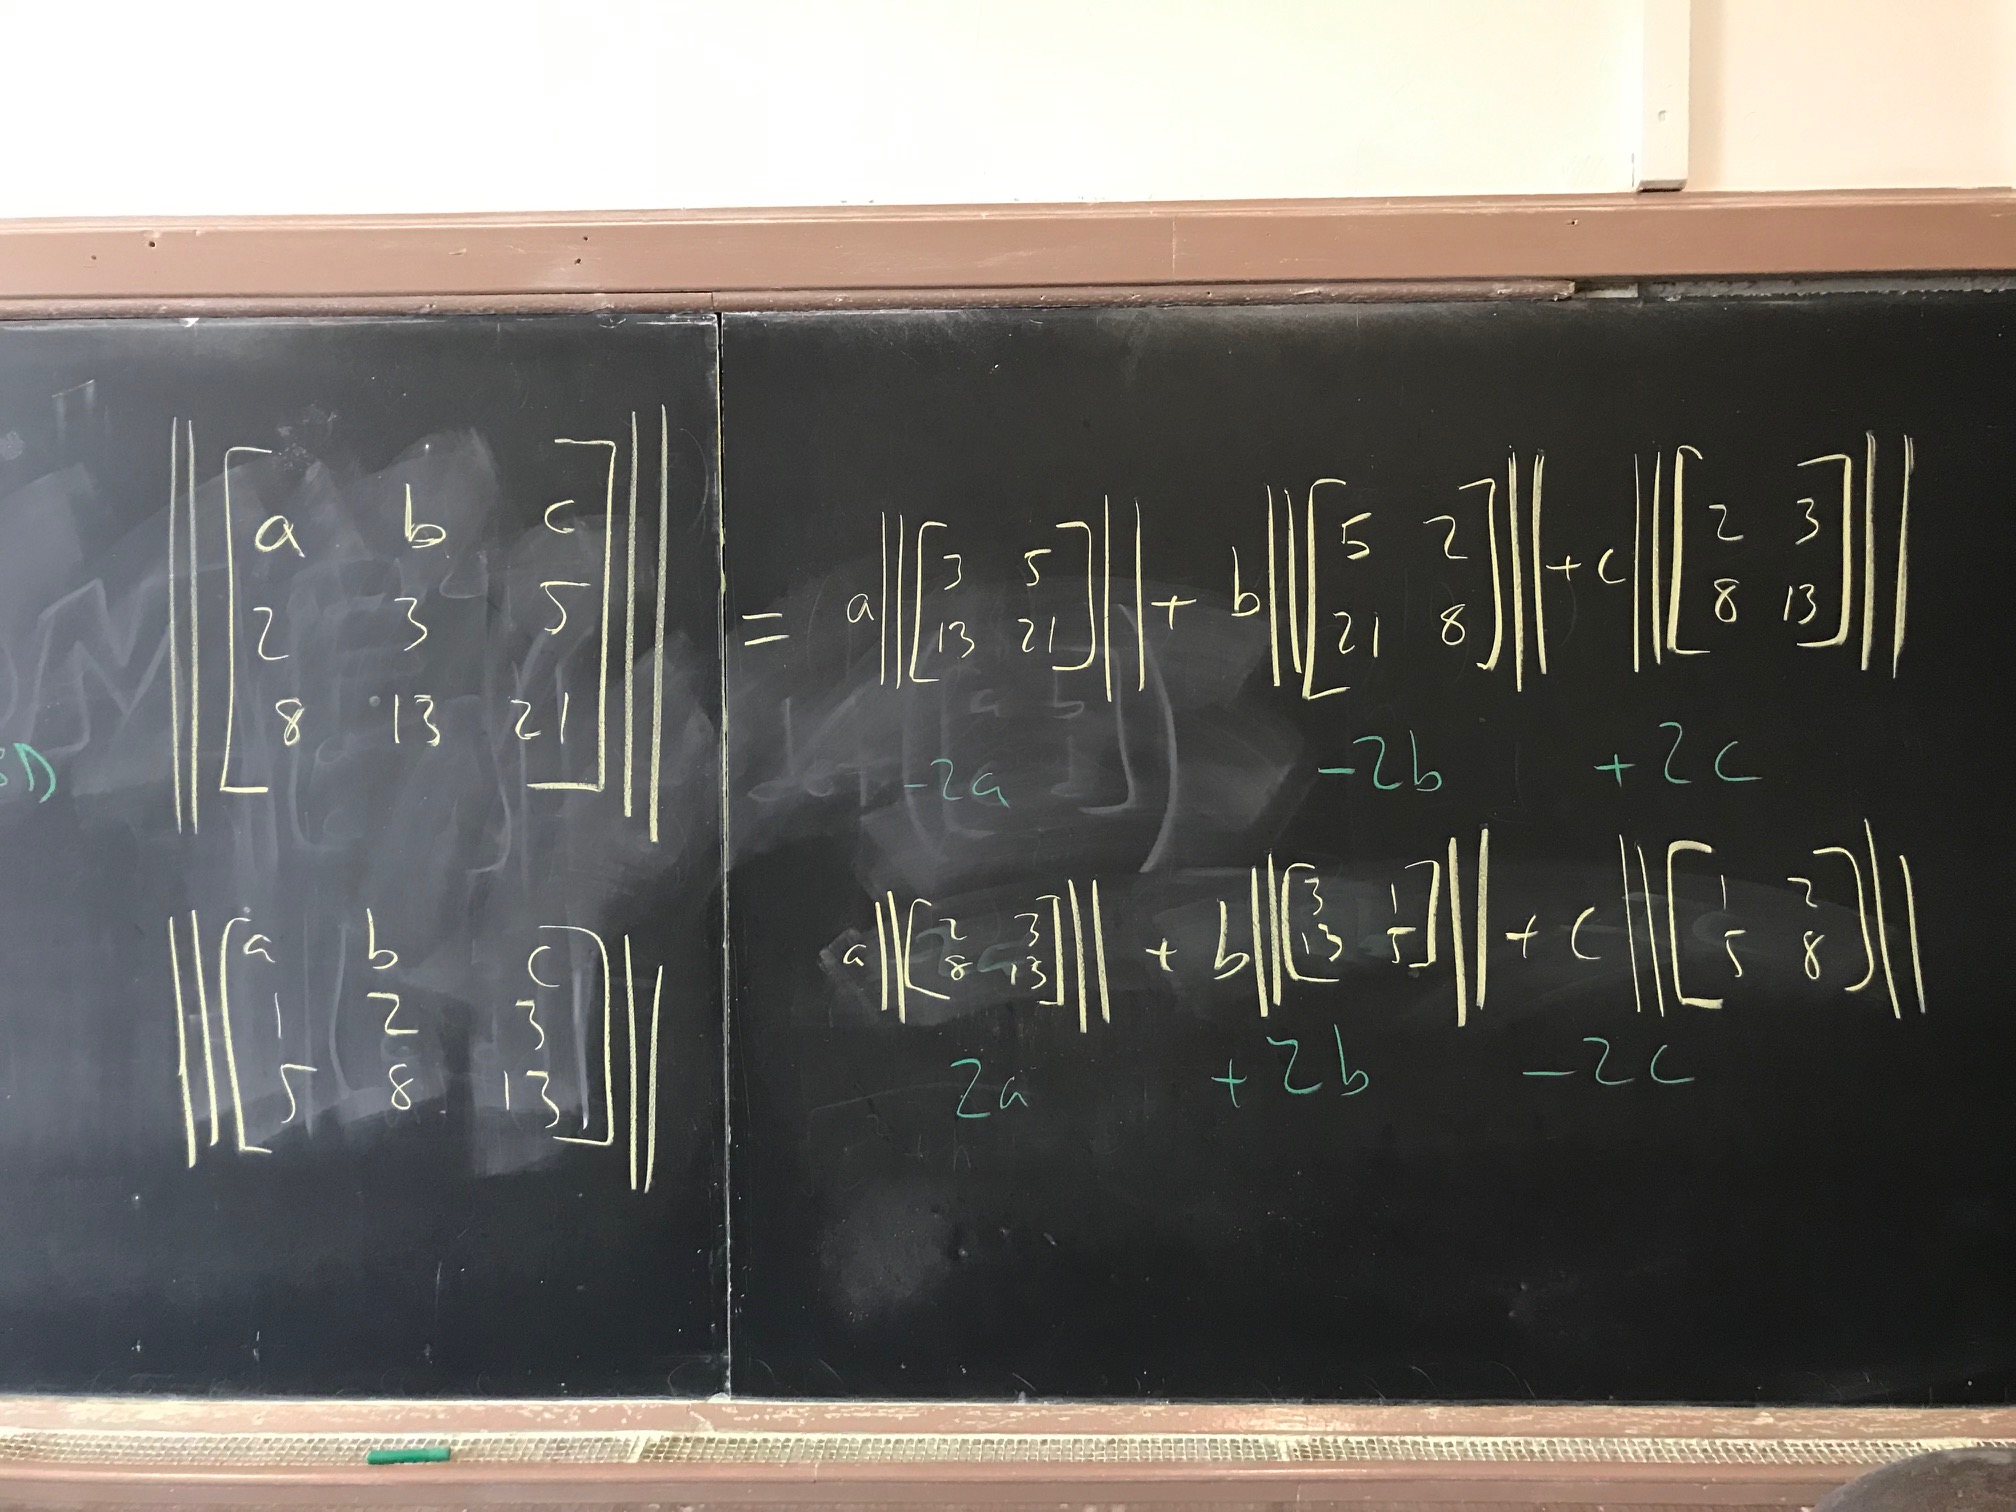 ‖[a b c
2 3 5
8 13 21]‖ = a‖[3 5
13 21]‖ + b‖[5 2
21 8]‖ + c‖[2 3
8 13]‖
-2a -2b +2c
‖[a b c
1 2 3
5 8 13]‖ a‖[2 3
8 13]‖ + b‖[3 1
13 5]‖ + c‖[1 2
5 8]‖
2a +2b -2c